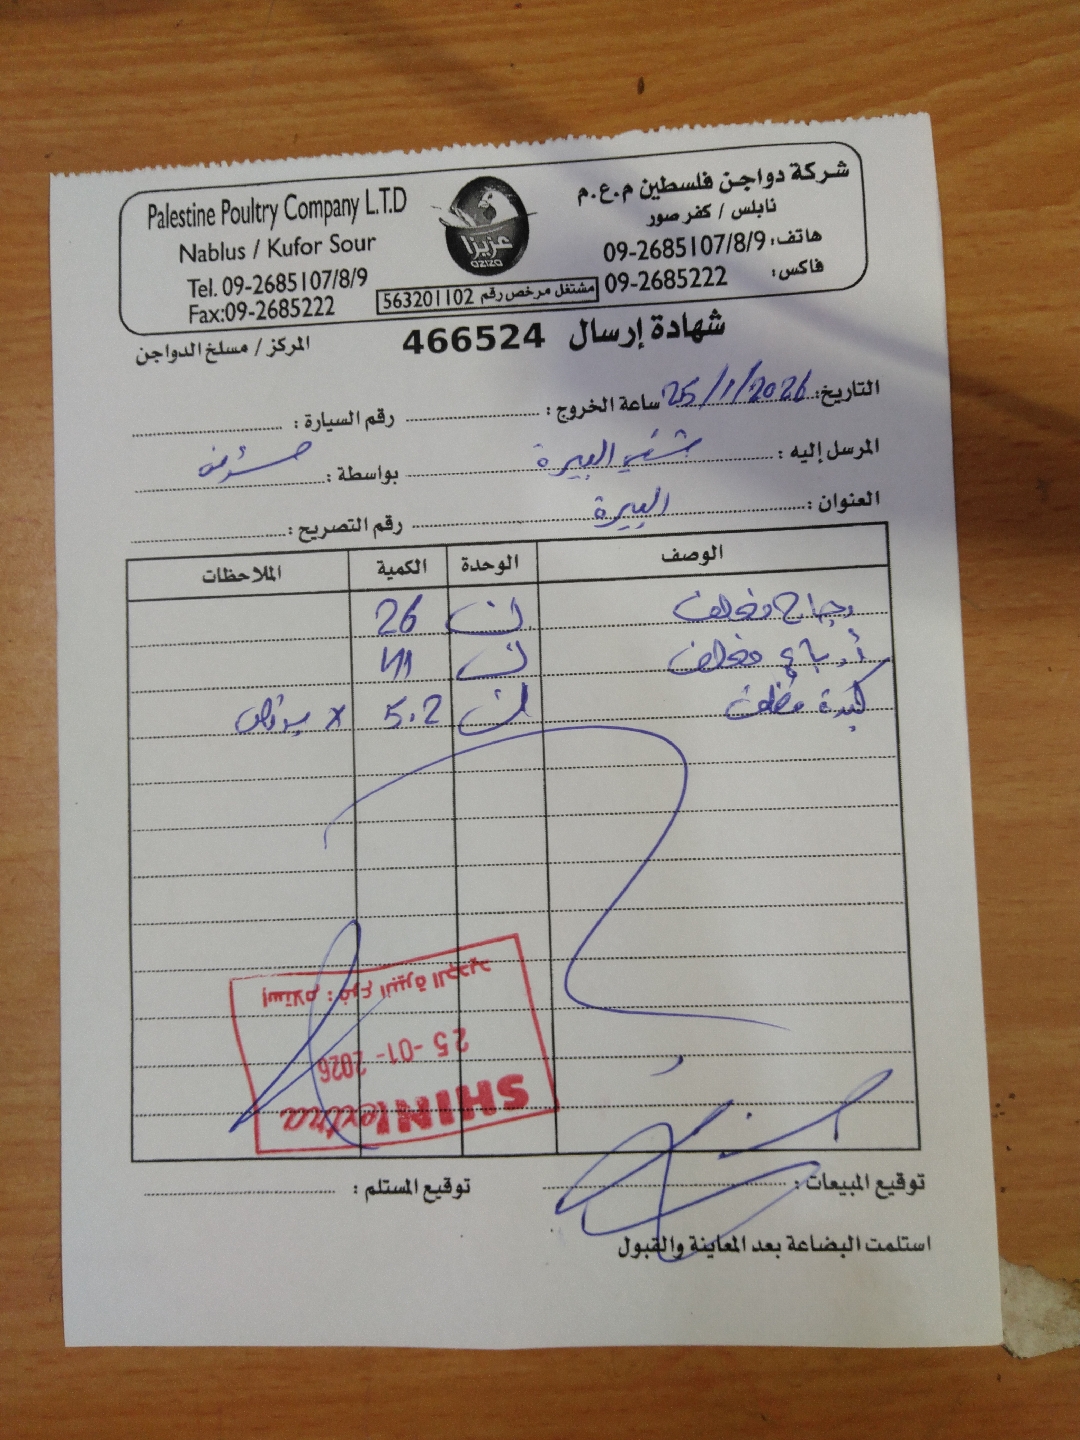 Palestine Poultry Company L.T.D
Nablus / Kufor Sour
Tel. 09-2685107/8/9
Fax:09-2685222
عزيزا
aziza
مشتغل مرخص رقم 563201102
شركة دواجن فلسطين م.ع.م
نابلس / كفر صور
هاتف: 09-2685107/8/9
فاكس: 09-2685222
شهادة إرسال 466524
المركز / مسلخ الدواجن
التاريخ: 25/1/2026 ساعة الخروج : رقم السيارة :
المرسل إليه : شني البيرة بواسطة :
العنوان : البيرة رقم التصريح :
الوصف الوحدة الكمية الملاحظات
دجاج مغلف 26
أرباع مغلف
كبدة مغلف 5.2 x
إستلام : فرع البيرة الجديد
25 -01- 2026
SHINIextra
توقيع المبيعات : توقيع المستلم :
استلمت البضاعة بعد المعاينة والقبول